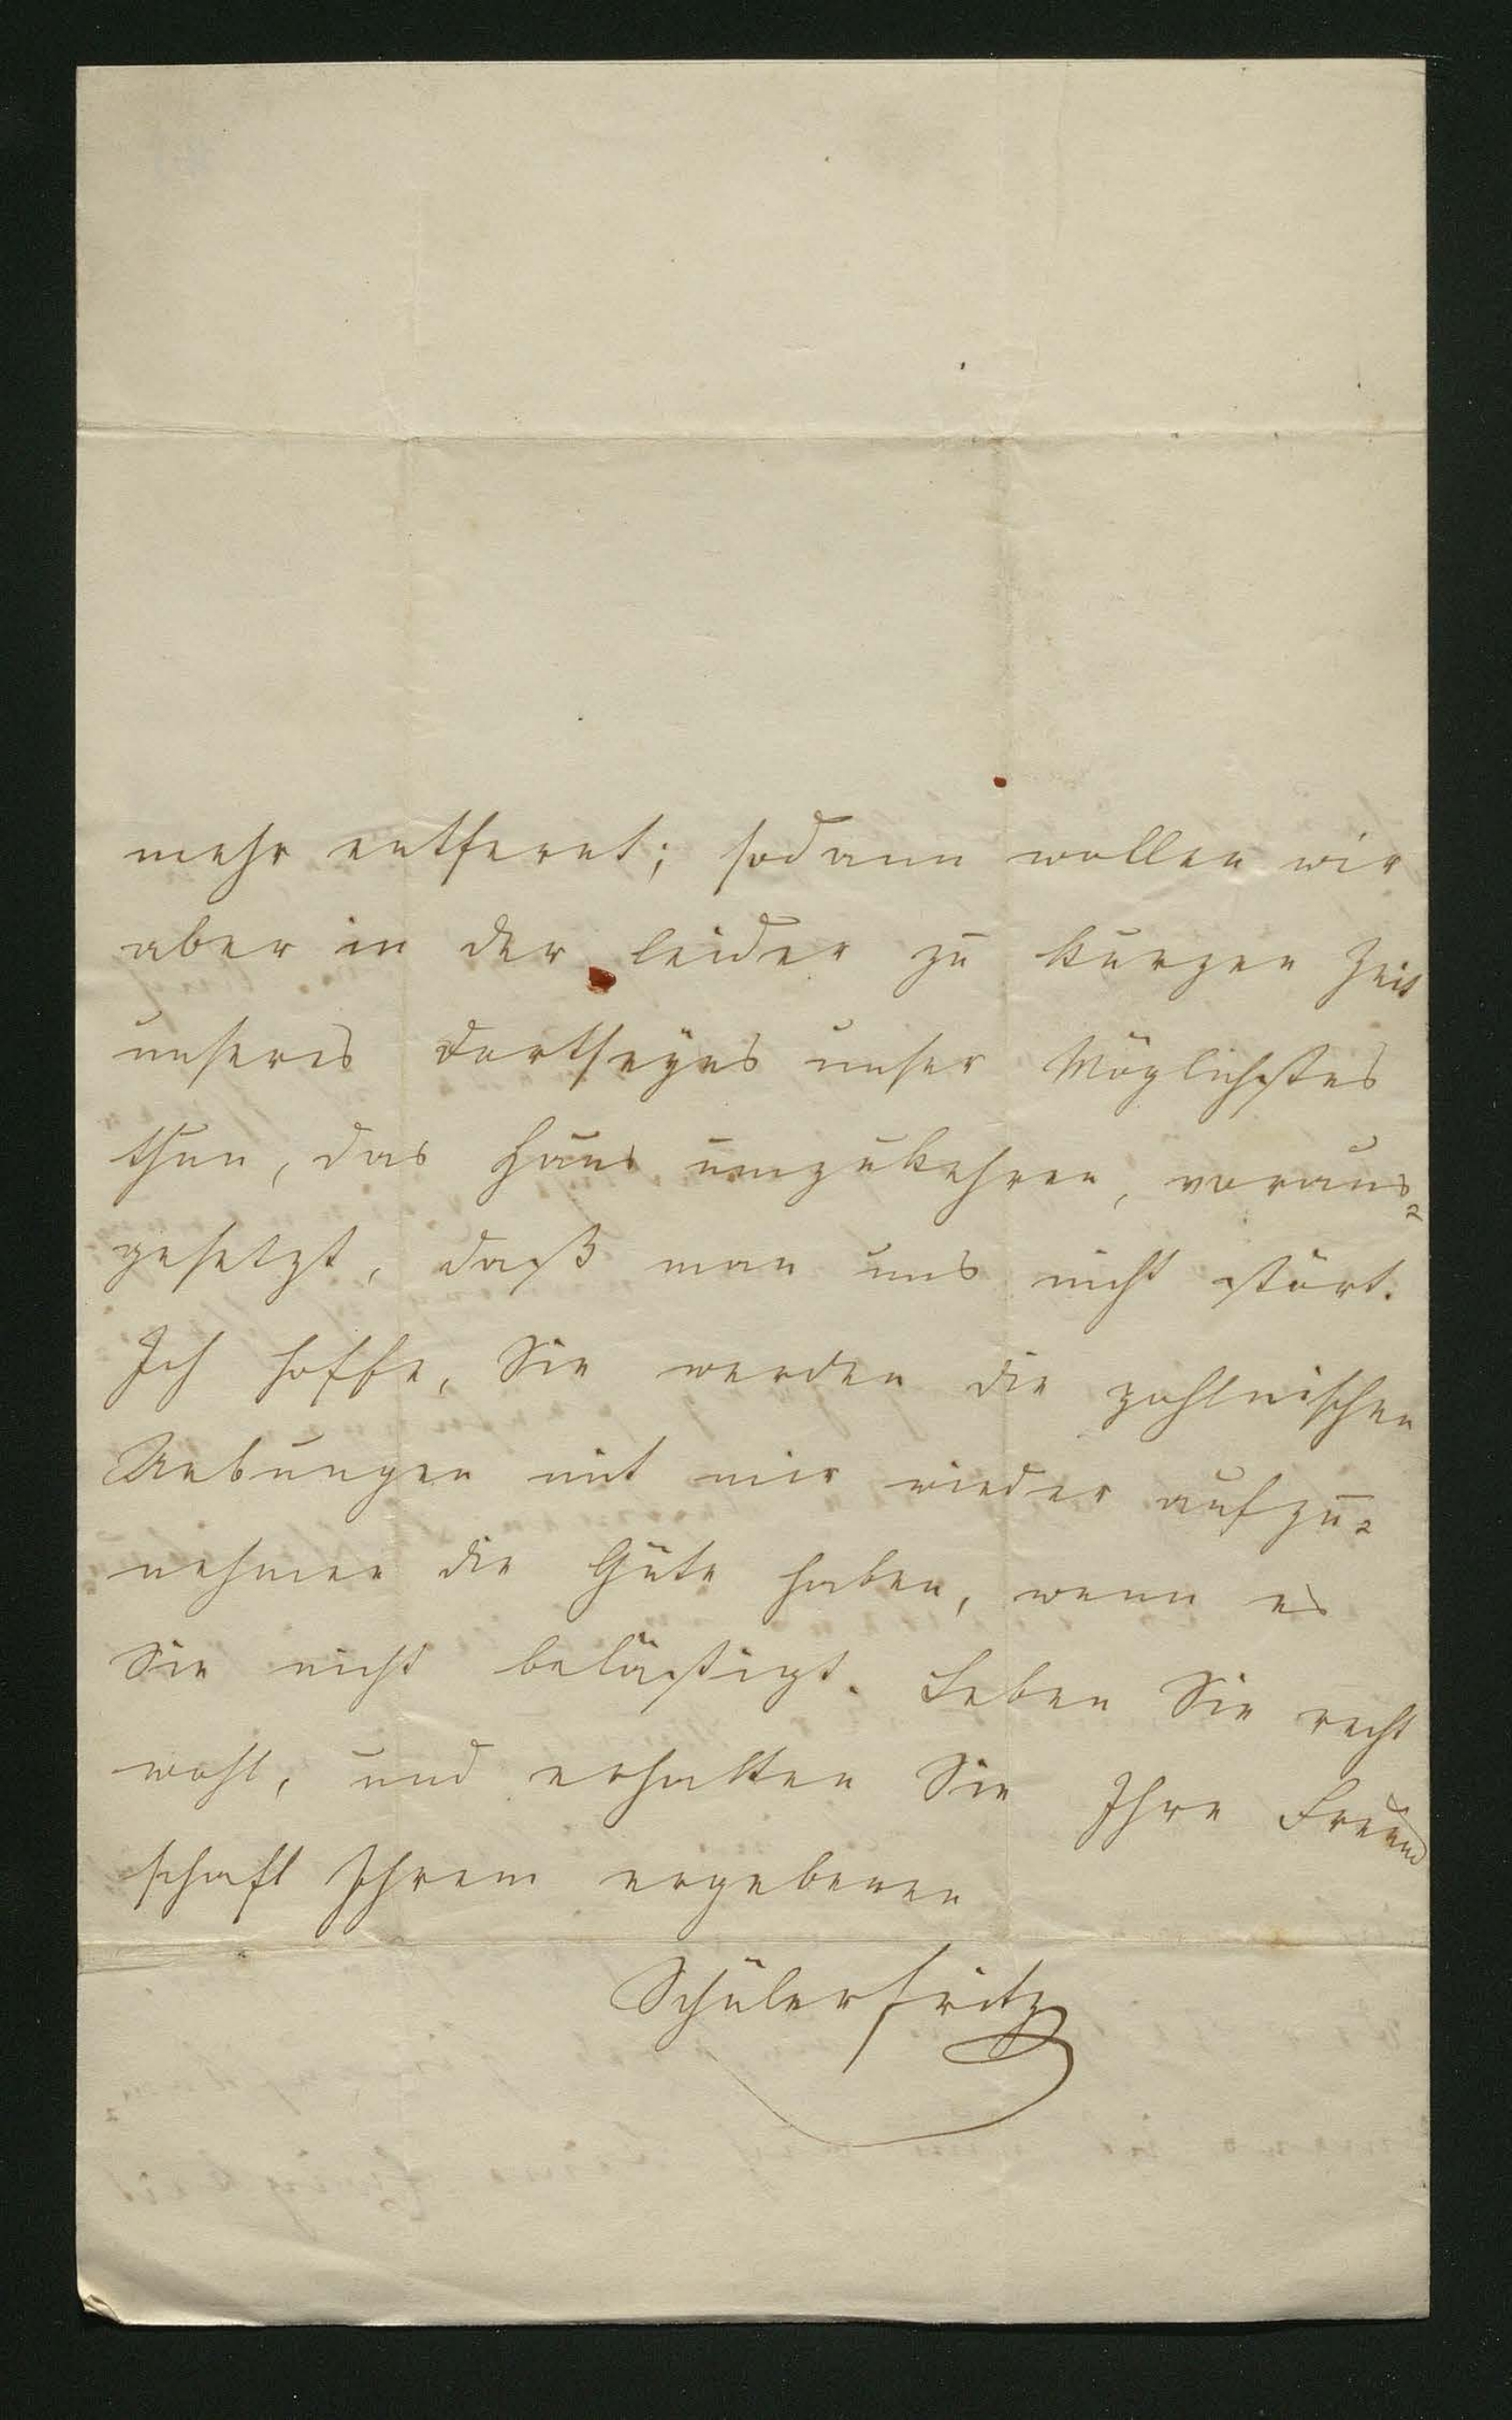 mehr entfernt; sodann wollen wir
aber in der leider zu kurzen Zeit
unseres Dortseyns unser Möglichstes
thun, das Haus umzukehren, voraus=
gesetzt, daß man uns nicht stört.
Ich hoffe, Sie werden die
Uebungen mit mir wieder aufzu=
nehmen die Güte haben, wenn es
Sie nicht belästigt. Leben Sie recht
wohl, und erhalten Sie Ihre Freund
schaft Ihrem ergebenen
Schülerfritz